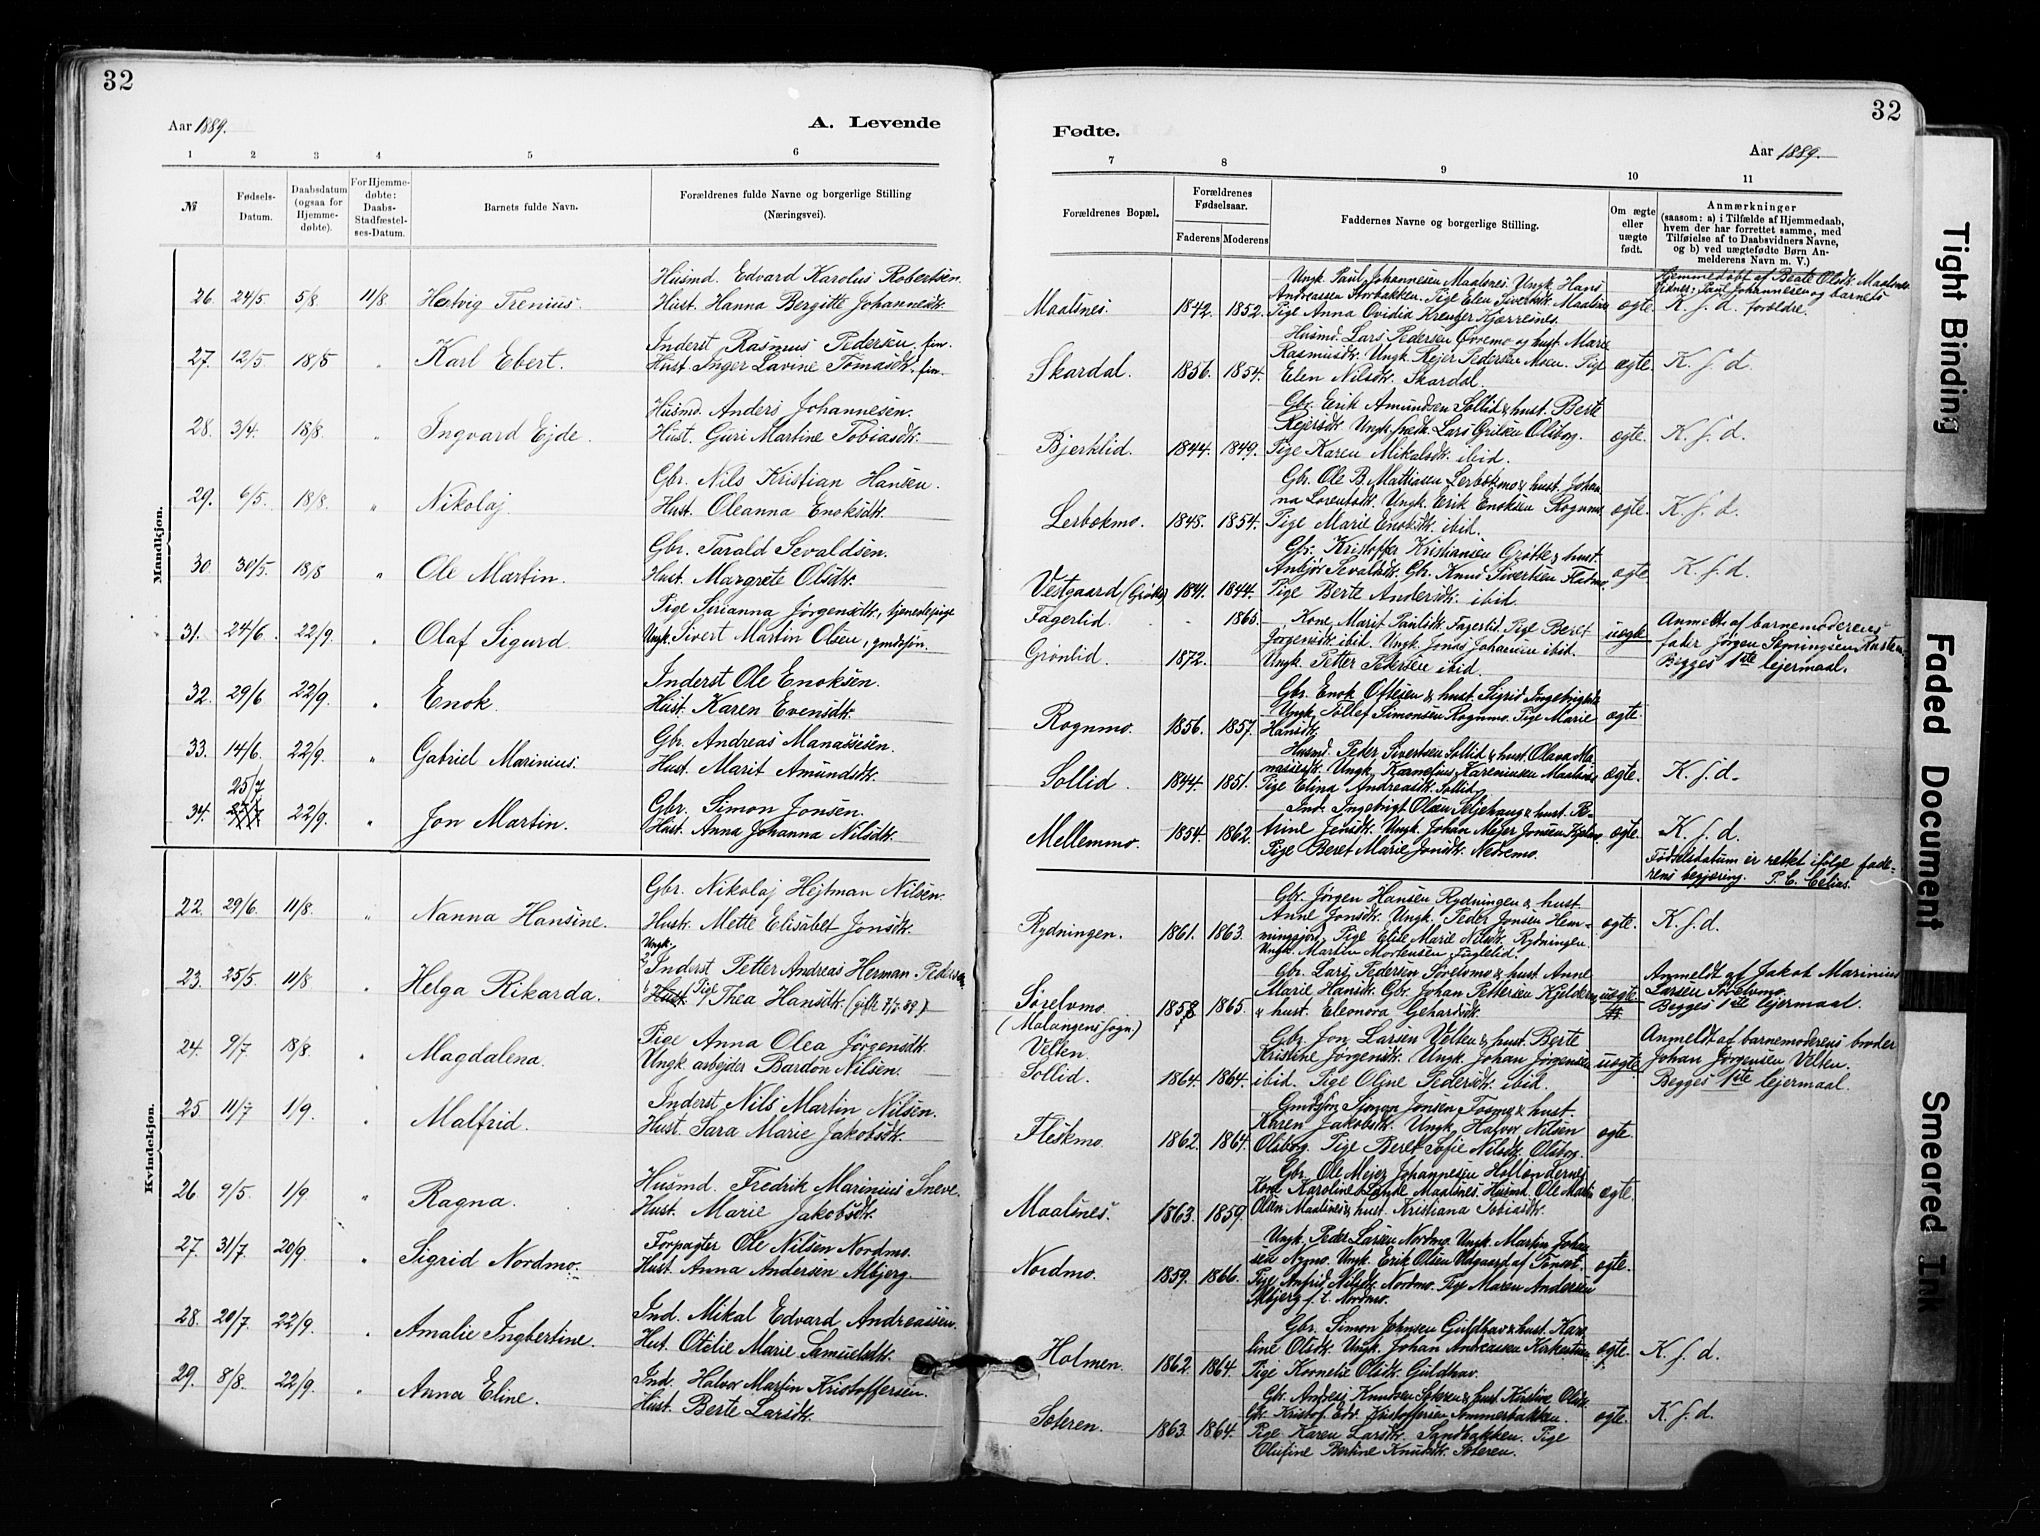 32
Aar 1889.
A. Levende
1 2 3 4 5 6
№
Fødsels-
Datum.
Daabsdatum
(ogsaa for
Hjemme-
døbte).
For Hjemme-
døbte:
Daabs-
Stadfæstel-
ses-Datum.
Barnets fulde Navn.
Forældrenes fulde Navne og borgerlige Stilling
(Næringsvei).
Mandkjøn.
Husmd. Edvard Karolus Robertsen.
26. 24/5 5/8 11/8 Hartvig Trenius. Hust. Hanna Bergitte Johannesdtr.
Inderst Rasmus Pedersen. fin.
27. 12/5. 18/8 " Karl Ebert. Hust. Inger Lavine Tomasdtr. fin.
Husmd. Anders Johannesen.
28. 3/4. 18/8. " Ingvard Ejde. Hust. Guri Martine Tobiasdtr.
Gbr. Nils Kristian Hansen.
29. 6/5. 18/8. " Nikolaj. Hust. Oleanna Enoksdtr.
Gbr. Tarald Sevaldsen.
30. 30/5. 18/8 " Ole Martin. Hust. Margrete Olsdtr.
Pige Sirianna Jørgensdtr., tjenestepige
31. 24/6. 22/9. " Olaf Sigurd. Ungk. Sivert Martin Olsen, gmdsøn.
Inderst Ole Enoksen.
32. 29/6 22/9. " Enok. Hust. Karen Evensdtr.
Gbr. Andreas Manassesen.
33. 14/6. 22/9. " Gabriel Marinius. Hust. Marit Amundsdtr.
25/7
Gbr. Simon Jonsen.
34. 22/9. " Jon Martin. Hust. Anna Johanna Nilsdtr.
Kvindekjøn.
Gbr. Nikolaj Hejtman Nilsen.
22. 29/6. 11/8. " Nanna Hansine. Hust. Mette Elisabet Jonsdtr.
Ungk.
23. 25/5 11/8 " Helga Rikarda. Inderst Petter Andreas Herman Pedersen
Hust. Pige Thea Hansdtr. (gifte 7/7. 89.)
Pige Anna Olea Jørgensdtr.
24. 9/7 18/8. " Magdalena. Ungk. arbejder Bardon Nilsen.
Inderst Nils Martin Nilsen.
25. 11/7 1/9. " Malfrid. Hust. Sara Marie Jakobsdtr.
Husmd. Fredrik Marinius Sneve.
26. 9/5. 1/9 " Ragna. Hust. Marie Jakobsdtr.
Forpagter Ole Nilsen Nordmo.
27. 31/7 20/9. " Sigrid Nordmo. Hust. Anna Andersen Abjerg.
Ind. Mikal Edvard Andreassen.
28. 20/7. 22/9. " Amalie Ingbertine. Hust. Otelie Marie Samuelsdtr.
Ind. Halvor Martin Kristoffersen.
29. 8/8. 22/9. " Anna Eline. Hust. Berte Larsdtr.
Fødte.
32
Aar 1889.
7 8 9 10 11
Forældrenes Bopæl.
Forældrenes
Fødselsaar.
Faderens Moderens
Faddernes Navne og borgerlige Stilling.
Om ægte
eller
uægte
født.
Anmærkninger
(saasom: a) i Tilfælde af Hjemmedaab,
hvem der har forrettet samme, med
Tilføielse af to Daabsvidners Navne,
og b) ved uægtefødte Børn An-
melderens Navn m. V.)
Ungk. Paul Johannesen Maalsnes. Ungk. Hans
Andreassen Storbakken. Pige Elen Sivertsdtr. Maalsnes
Maalsnes. 1842. 1852. Pige Anna Ovidia Kreutzer Kjærresnes. ægte.
Hjemmedøbt af Beate Olsdtr. Maalsnes
Vidner: Paul Johannesen og barnets
K. f. d. forældre.
Husmd. Lars Pedersen Øvremo og hust. Marie
Rasmusdtr. Ungk. Rejer Pedersen Moen. Pige
Skardal. 1856. 1854. Elen Nilsdtr. Skardal. ægte. K. f. d.
Gbr. Erik Amundsen Sollid & hust. Berte
Rejersdtr. Ungk. Lars Olsborg.
Bjerklid. 1844. 1849. Pige Karen Mikalsdtr. ibid. ægte. K. f. d.
Gbr. Ole B. Mattiasen Lerbækmo & hust. Johan-
na Lorentsdtr. Ungk. Erik Enoksen Rognmo
Lerbekmo. 1845. 1854. Pige Marie Enoksdtr. ibid. ægte. K. f. d.
Gbr. Kristoffer Kristiansen Grøtte & hust.
Anbjør Sevaldsdtr. Gbr. Knud Sivertsen Flatmo
Vestgaard (Grøtte) 1841. 1844. Pige Berte Andersdtr. ibid. ægte. K. f. d.
Fagerlid. 1865. Kone Marit Paulsdtr. Fagerlid. Pige Beret
Jørgensdtr. ibid. Ungk. Jonas Johansen ibid. uægte
Grønlid. 1872. Ungk. Petter Pedersen ibid.
Anmeldt af barnemoderens
fader Jørgen Simingsen
Begges 1ste lejermaal.
Gbr. Enok Oftesen & hust. Sigrid Ingebrigtsdtr.
Ungk. Tollef Simonsen Rognmo. Pige Marie
Rognmo. 1856. 1857. Hansdtr. ægte.
Husmd. Peder Sivertsen Sollid & hust. Olava Ma-
nassesdtr. Ungk. Karnelius Kareniusen Maalsnes
Sollid. 1844. 1851. Pige Elina Andreasdtr. Sollid. ægte. K. f. d.
Ind. Ingebrigt Olsen Seljehaug & hust. Pe-
trine Jensdtr. Ungk. Johan Mejer Jonsen
Mellemmo. 1854. 1862. Pige Beret Marie Jonsdtr. Nedremo. ægte. K. f. d.
Fødselsdatum er rettet ifølge fade-
rens begjæring. P. C. Celius.
Gbr. Jørgen Hansen Rydningen & hust.
Anne Jonsdtr. Ungk. Peder Jonsen Hem-
Rydningen. 1861. 1863. mingsjord. Pige Elise Marie Nilsdtr. Rydningen. ægte. K. f. d.
Ungk. Martin Mortensen Fuglelid.
Gbr. Lars Pedersen Sørelvmo & hust. Anne
Marie Hansdtr. Gbr. Johan Pettersen
Sørelvmo. 1858 1865. & hust. Eleonora Gehardsdtr. uægte
(Malangens sogn.)
Anmeldt af Jakob Marinius
Larsen Sørelvmo.
Begges 1ste lejermaal.
Gbr. Jon Larsen Velten & hust. Berte
Velten. Kristine Jørgensdtr. Ungk. Johan Jørgensen uægte.
Sollid. 1864. 1864. ibid. Pige Oline Pedersdtr. ibid.
Anmeldt af barnemoderens broder
Johan Jørgensen Velten.
Begges 1ste lejermaal.
Gmdsøn Simon Jonsen Fosmo & hust.
Karen Jakobsdtr. Ungk. Halvor Nilsen
Fleskmo. 1862. 1864. Olsborg. Pige Beret Sofie Nilsdtr. Olsborg. ægte.
Gbr. Ole Mejer Johannesen Hollendernes
Kone Karoline Lande Maalsnes. Husmd. Ole Martin
Maalsnes. 1863. 1859. Olsen Maalsnes & hust. Kristiana Tobiasdtr. ægte.
Ungk. Peder Larsen Nordmo. Ungk. Martin Johan-
sen Nymo. Ungk. Erik Olsen Udgaard af Tønset.
Nordmo. 1859. 1866. Pige Anfrid Nilsdtr. Nordmo. Pige Maren Andersen ægte.
Abjerg f. t. Nordmo.
Gbr. Simon Johnsen Guldhav & hust. Karo-
line Olsdtr. Ungk. Johan Andreassen
Holmen. 1862. 1864. Pige Kornelie Olsdtr. Guldhav. ægte. K. f. d.
Gbr. Anders Knudsen Søteren & hust. Kristine Olsdtr.
Gbr. Kristof. Edv. Kristoffersen Sommerbakken.
Søteren. 1863. 1864. Pige Karen Larsdtr. Sandbakken. Pige ægte. K. f. d.
Olufine Bertine Knudsdtr. Søteren.
Tight Binding
Faded Document
Smeared Ink